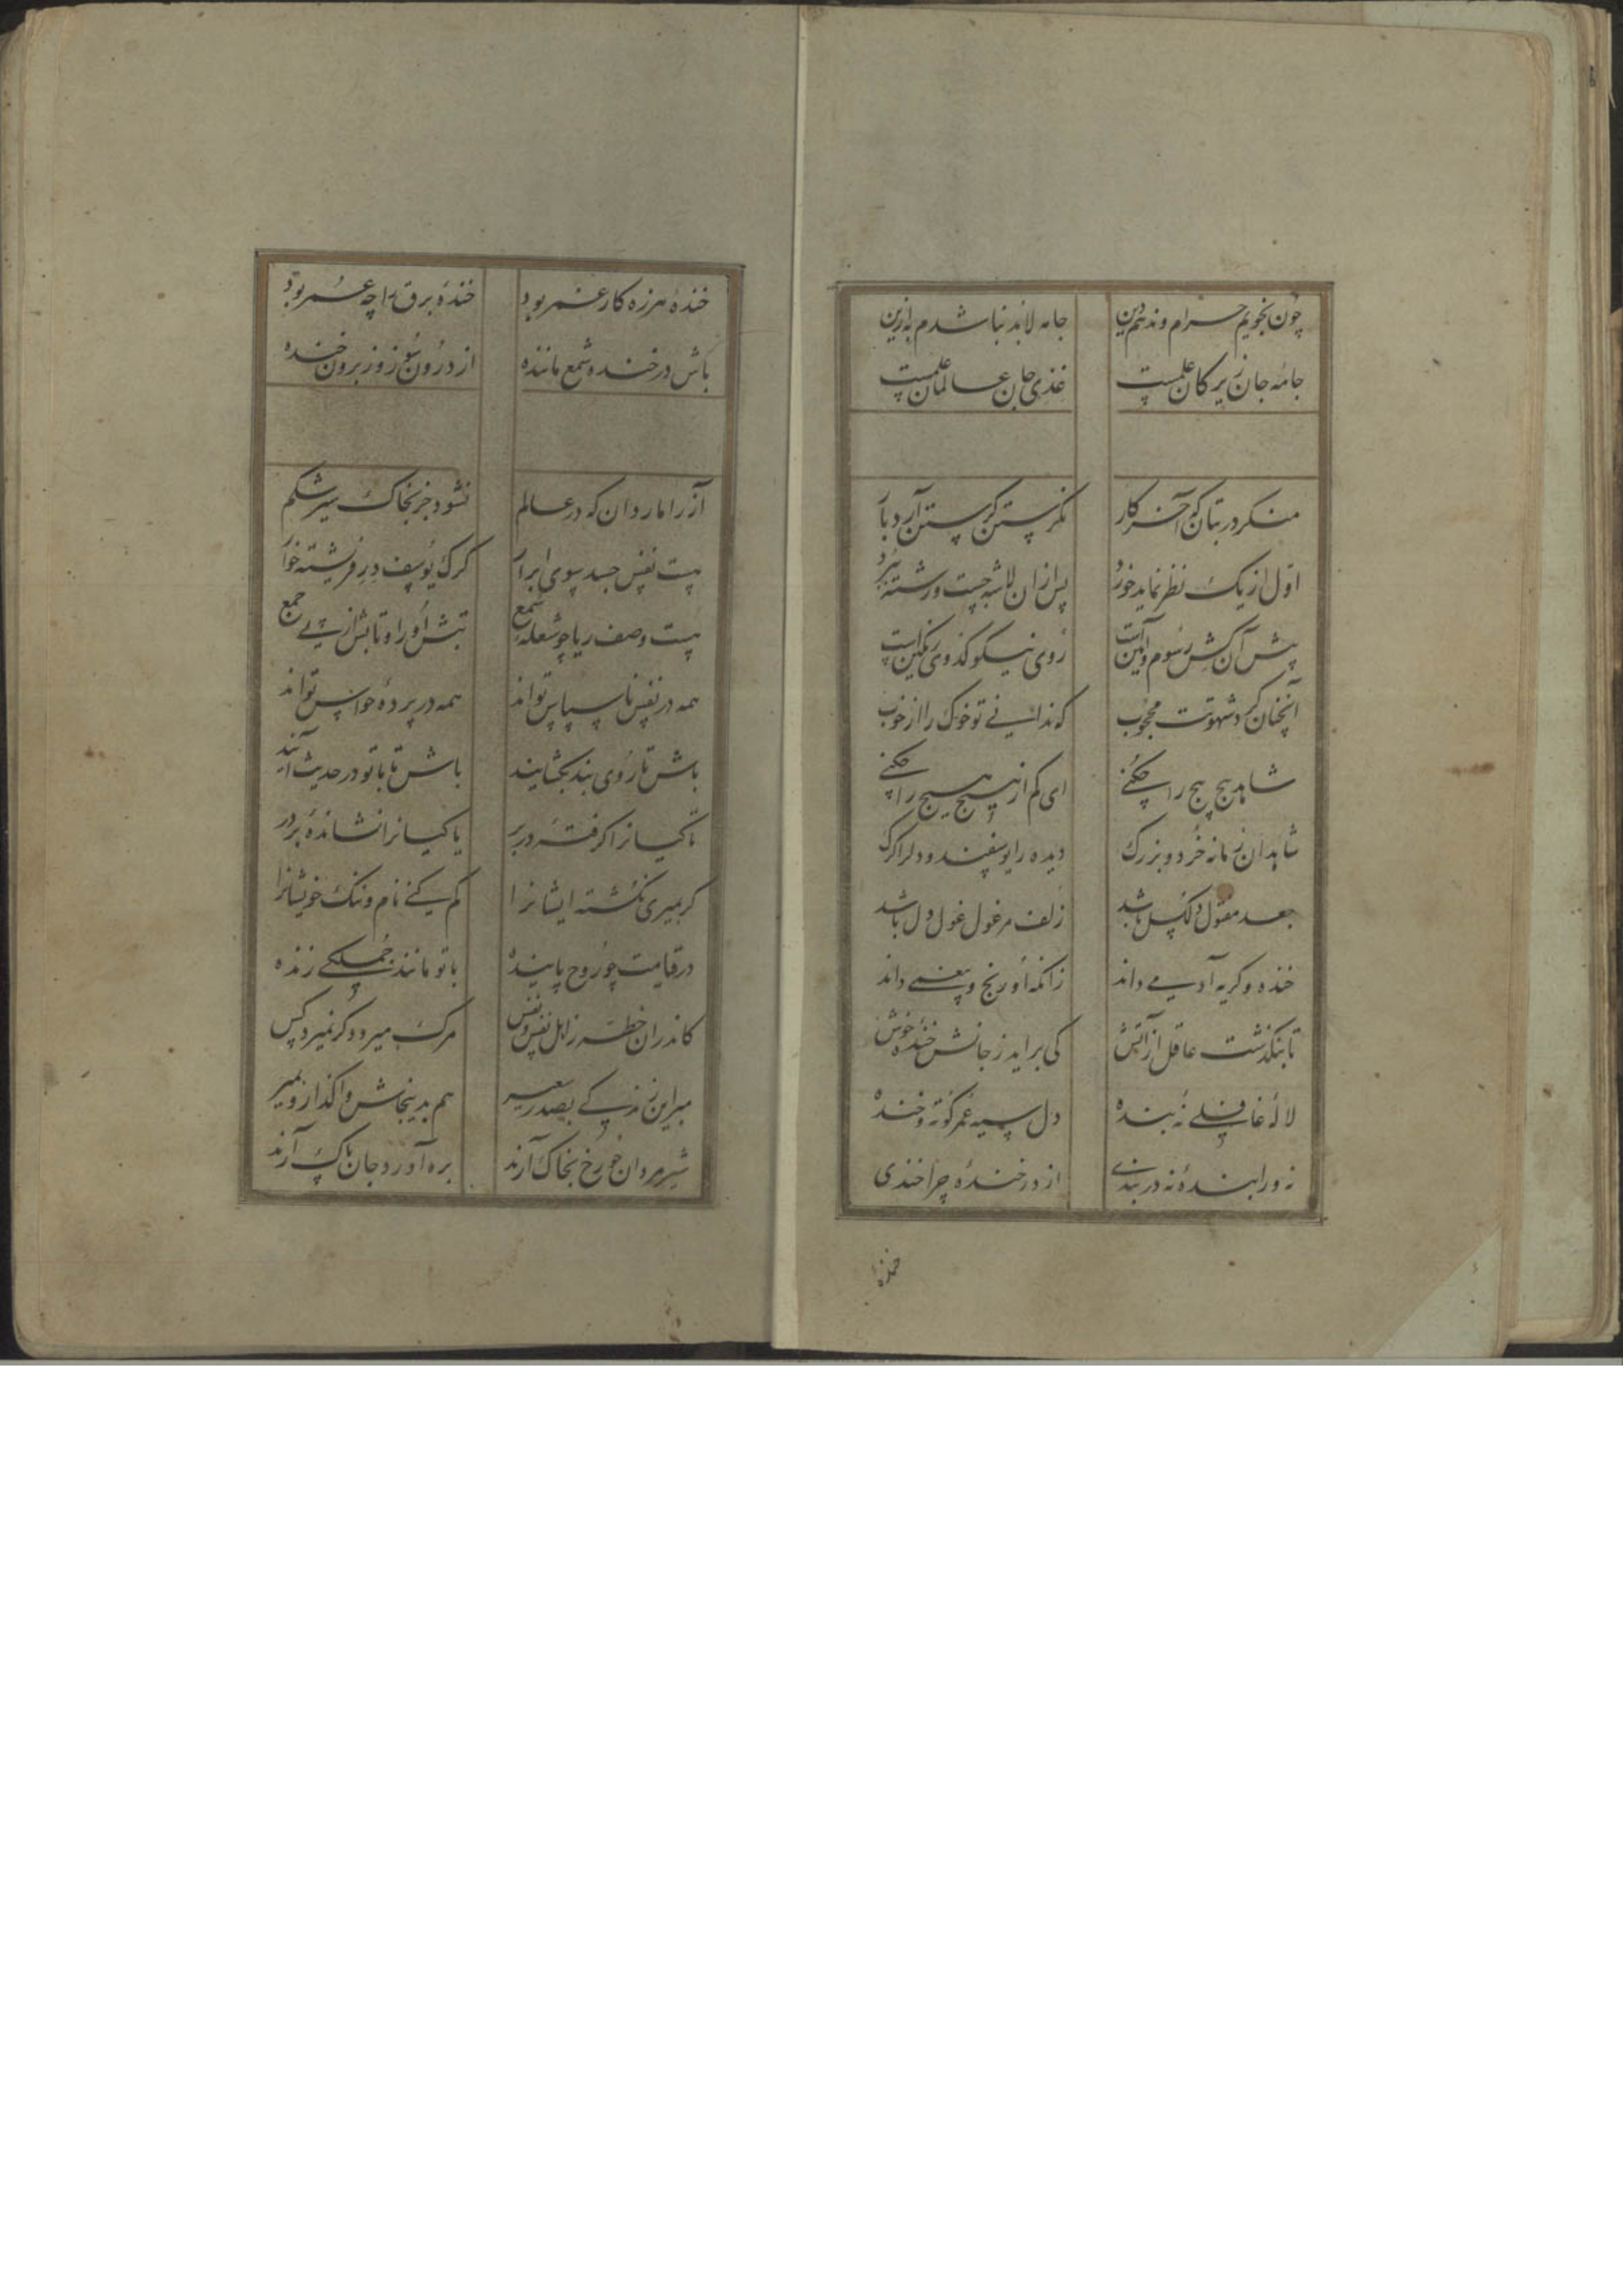 چون نجویم حرام و ندهم دین جامه لابد نباشدم به ازین
جامهٔ جان زیرکان علمست غذی جان عالمان علمست
منکر در بتان که آخر کار نگرستن گرستن آرد بار
اول آن یک نظر نماید خرد پس ازان لاشه جست و رشته ببرد
پیش آن کش رسوم و آیین است روی نیکو کدوی رنگین است
آنچنان کرد شهوتت محجوب که ندانی تو خوک را از خوب
شاهد هیچ هیچ را چکنی ای کم از هیچ هیچ را چکنی
شاهدان زمانه خرد و بزرگ دیده را یوسفند و دل را گرگ
جعد مفتول دلگسل باشد زلف مرغول غول دل باشد
خنده و گریه آدمی داند زانکه او رنج و بیغمی داند
تا بنگذشت عاقل از آتش کی برآید ز جانش خندهٔ خوش
لالهٔ غافلی نهٔ بنده دل سیه عمر کوته و خنده
نه ورا بندهٔ نه دربندی از در خندهٔ چرا خندی
خندهٔ
خندهٔ هرزه کار غمر بود خندهٔ برق را چه عمر بود
باش در خنده شمع ماننده از درون سوز و ز برون خنده
آز را مار دان که در عالم نشود جز بخاک سیر شکم
هست نفس جسد بسوی ابرار گرگ یوسف در فرشته خوار
هست وصف ریا چو شعلهٔ شمع تبش او را و تابش از پی جمع
همه در نفس ناسپاس تواند همه در پردهٔ حواس تواند
باش تا روی بند بگشایند باش تا با تو در حدیث آیند
تا کیانرا گرفتهٔ در بر یا کیانرا نشاندهٔ بر در
گر بمیری نکشته ایشانرا گم کنی نام و ننگ خویشانرا
در قیامت چو روح پاینده با تو مانند جملگی زنده
کاندران خطه ز اهل نفس و نفس مرگ میرد و گر نمیرد کس
میر این زندگی بصدر سعیر هم بدینجاش واگذار و بمیر
شیر مردان چو رخ بخاک آرند بره آورد جان پاک آرند